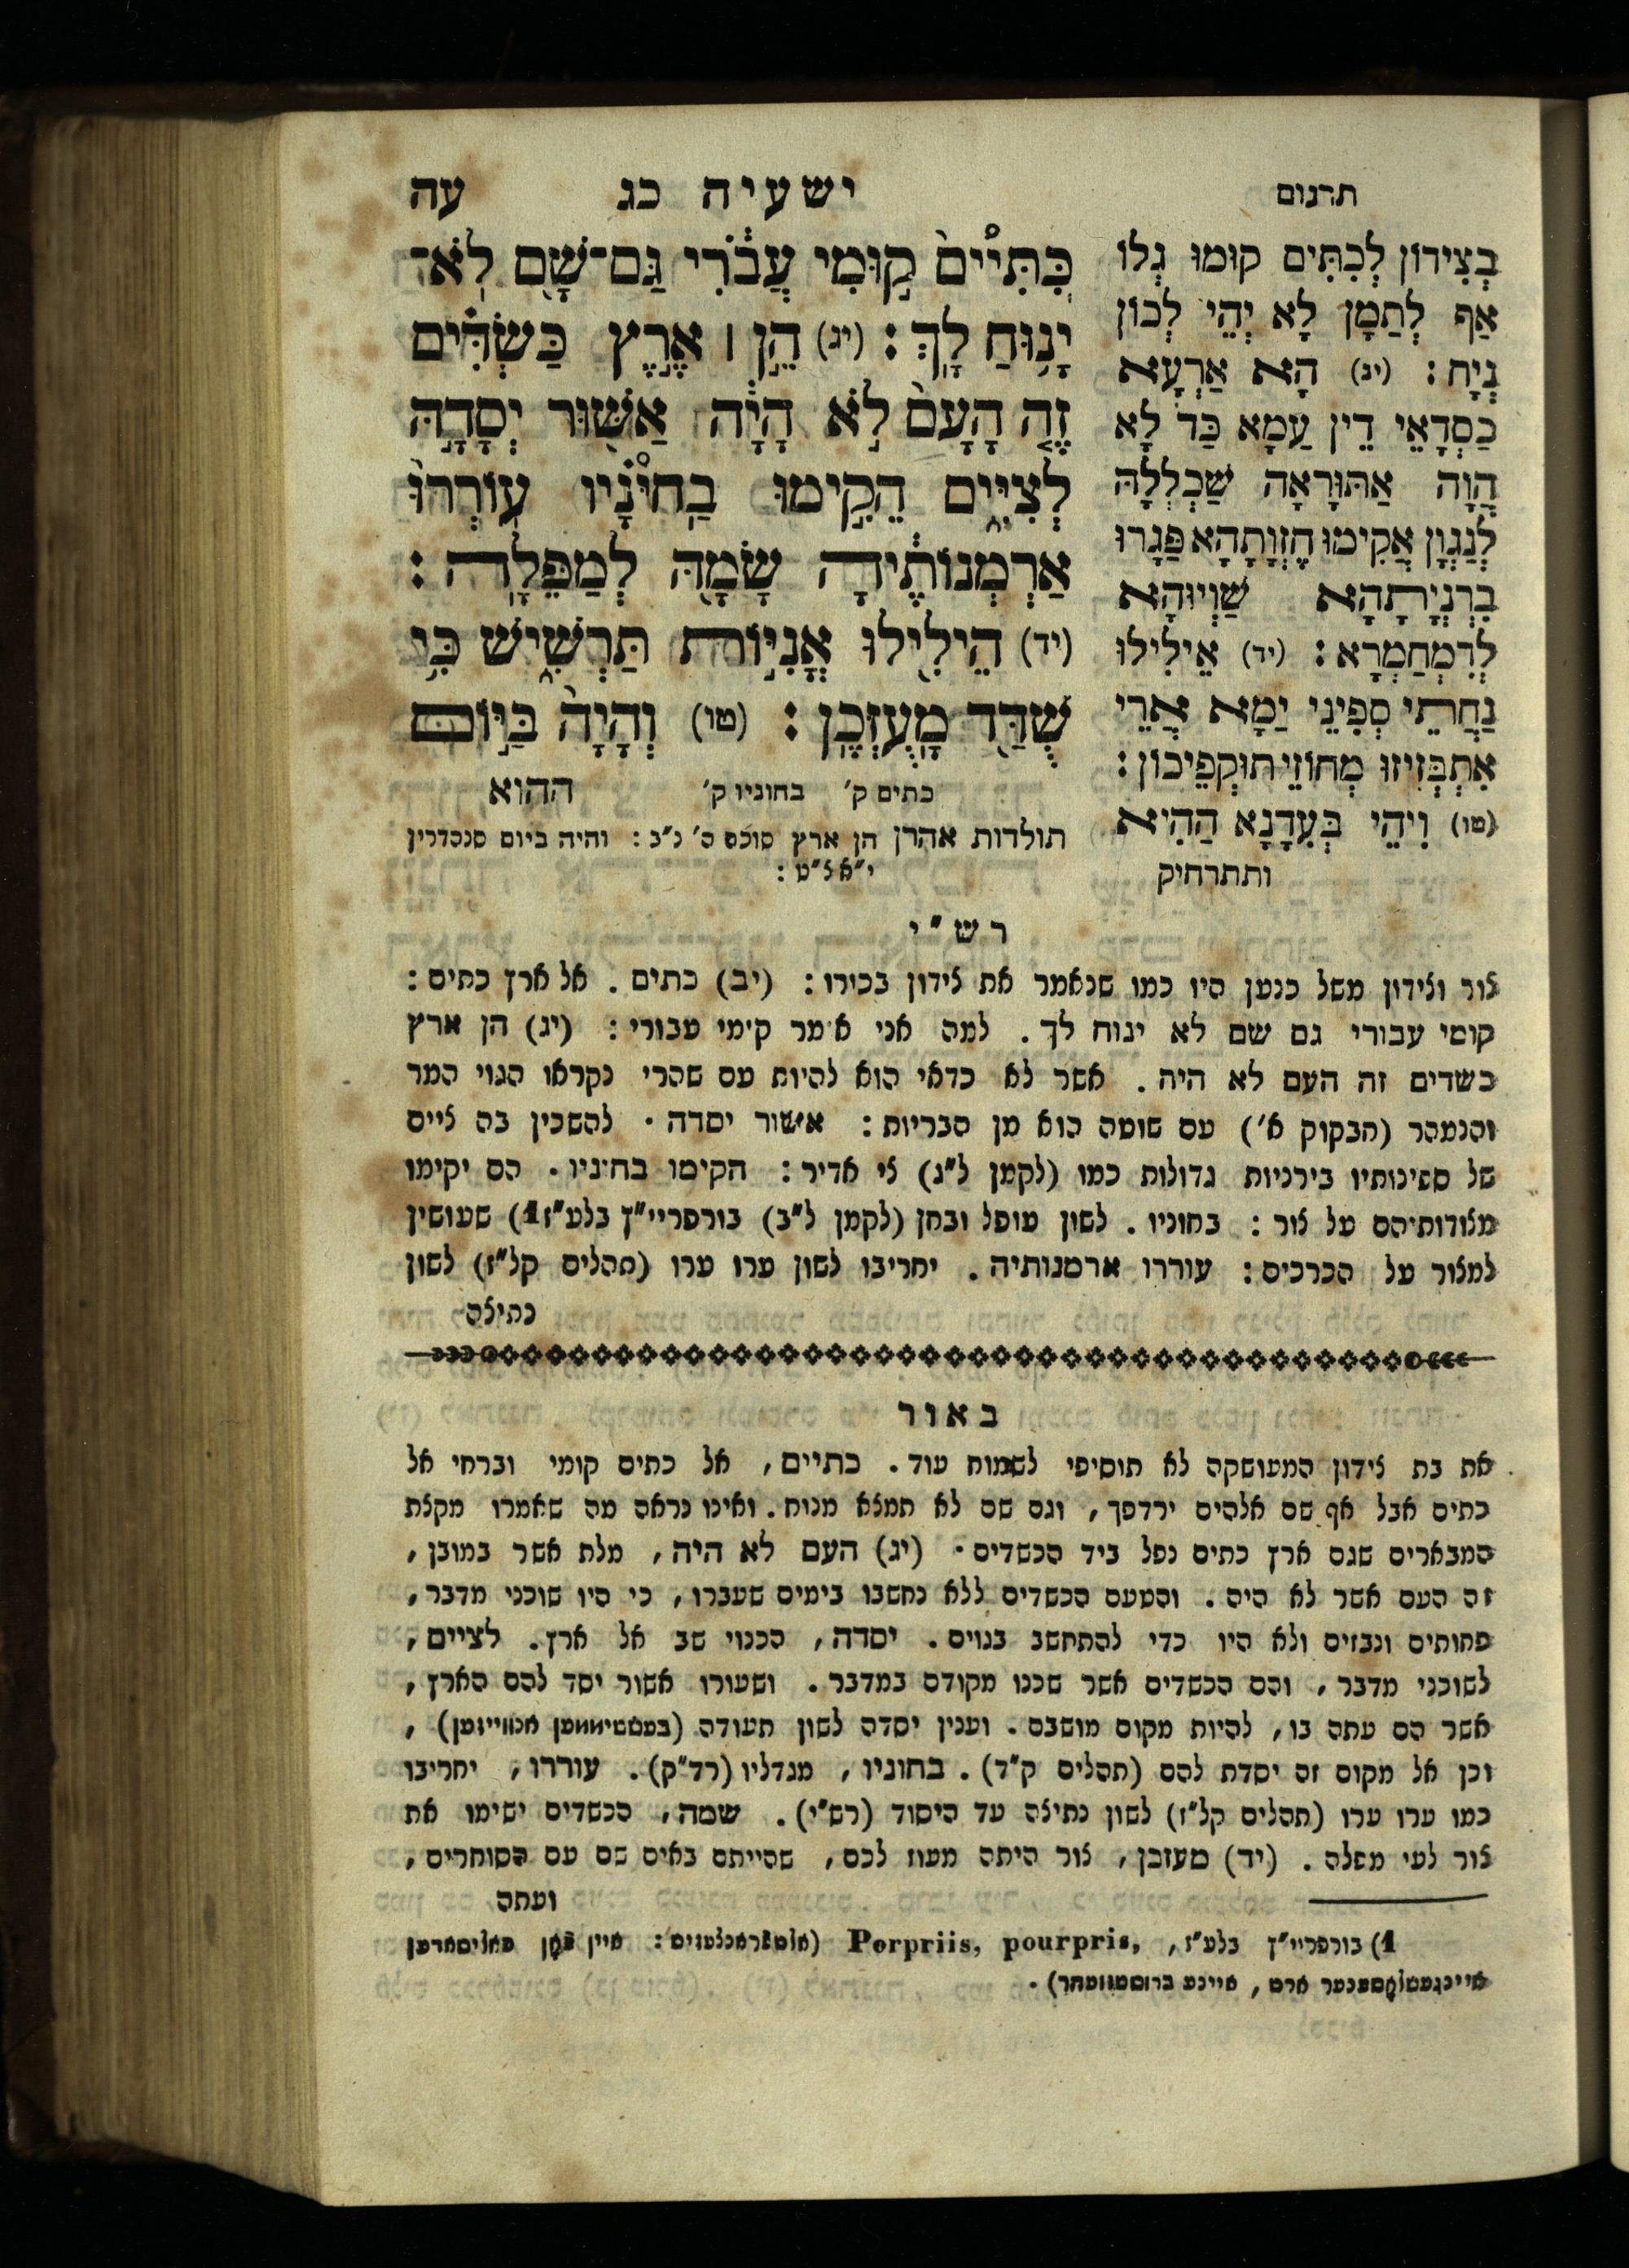 תרגום
ישעיה כג
עה
בְצִידוֹן לְכִתִּים קוּמוּ גְלוֹ
אַף לְתַמָן לָא יְהֵי לְכוֹן
נְיָח : (יג) הָא אַרְעָא
כַסְדָאֵי דֵין עַמָא כַּד לָא
הֲוָה אַתּוּרָאָה שַׁכְלְלָהּ
לְנַגְוָן אֲקִימוּ חֶזְוָתָהָא פַּגָרוּ
בִרְנְיָתָהָא שַׁוְיוּהָא
לְדִמְחַמְרָא : (יד) אֵילִילוּ
נַחֲתֵי סְפִינֵי יַמָא אֲרֵי
אִתְבְּזִיזוּ מְחוֹזֵי תוּקְפֵיכוֹן :
(טו) וִיהֵי בְּעִדָנָא הַהִיא
ותתרחיק
כִּתִּיִּים֙ ק֣וּמִי עֲבֹ֔רִי גַּם־שָׁ֖ם לֹא־
יָנ֥וּחַ לָֽךְ : (יג) הֵ֣ן ׀ אֶ֣רֶץ כַּשְׂדִּ֗ים
זֶ֤ה הָעָם֙ לֹ֣א הָיָ֔ה אַשּׁ֖וּר יְסָדָ֣הּ
לְצִיִּ֑ים הֵקִ֣ימוּ בַחִינָ֗יו עֽוֹרְרוּ֙
אַרְמְנוֹתֶ֔יהָ שָׂמָ֖הּ לְמַפֵּלָֽה :
(יד) הֵילִ֖ילוּ אֳנִיּ֣וֹת תַּרְשִׁ֑ישׁ כִּ֥י
שֻׁדַּ֖ד מָֽעֻזְּכֶֽן : (טו) וְהָיָה֙ בַּיּ֣וֹם
כתים ק׳ בחוניו ק׳
ההוא
תולדות אהרן הן ארץ סוכס ס׳ נ״ב : והיה ביום סנהדרין
י״א צ״ט :
רש״י
צור וצידון משל כנען היו כמו שנאמר את צידון בכורו : (יב) כתים . אל ארץ כתים :
קומי עבורי גם שם לא ינוח לך . למה אני אומר קומי עבורי : (יג) הן ארץ
כשדים זה העם לא היה . אשר לא כדאי הוא להיות עם שהרי נקראו הגוי המר
והנמהר (חבקוק א׳) עם שוטה הוא מן הבריות : אשור יסדה . להשכין בה ציים
של ספינותיו בירניות גדולות כמו (לקמן ל״ג) צי אדיר : הקימו בחוניו . הם יקימו
מצודותיהם על צור : בחוניו . לשון עופל ובחן (לקמן ל״ב) בורפריי״ץ בלע״ז1) שעושין
למצור על הכרכים : עוררו ארמנותיה . יחריבו לשון ערו ערו (תהלים קל״ז) לשון
נתיצה
באור
את בת צידון המעושקה לא תוסיפי לשמוח עוד . כתיים , אל כתים קומי וברחי אל
כתים אבל אף שם אלהים ירדפך , וגם שם לא תמצא מנוח . ואינו נראה מה שאמרו מקצת
המבארים שגם ארץ כתים נפל ביד הכשדים . (יג) העם לא היה , מלת אשר במובן ,
זה העם אשר לא היה . והטעם הכשדים ללא נחשבו בימים שעברו , כי היו שוכני מדבר ,
פחותים ונבזים ולא היו כדי להתחשב בגוים . יסדה , הכנוי שב אל ארץ . לציים ,
לשוכני מדבר , והם הכשדים אשר שכנו מקודם במדבר . ושעורו אשור יסד להם הארץ ,
אשר הם עתה בו , להיות מקום מושבם . וענין יסדה לשון תעודה (בעשטיממען אנווייזען) ,
וכן אל מקום זה יסדת להם (תהלים ק״ד) . בחוניו , מגדליו (רד״ק) . עוררו , יחריבו
כמו ערו ערו (תהלים קל״ז) לשון נתיצה עד היסוד (רש״י) . שמה , הכשדים ישימו את
צור לעי מפלה . (יד) מעזכן , צור היתה מעוז לכם , שהייתם באים שם עם הסוחרים ,
ועתה
1) בורפריי״ץ בלע״ז , Porpriis, pourpris, (אלטפראנצעזיש : איין פאן פאליסאדען
איינגעשלאסענער ארט , איינע ברוסטוועהר) .